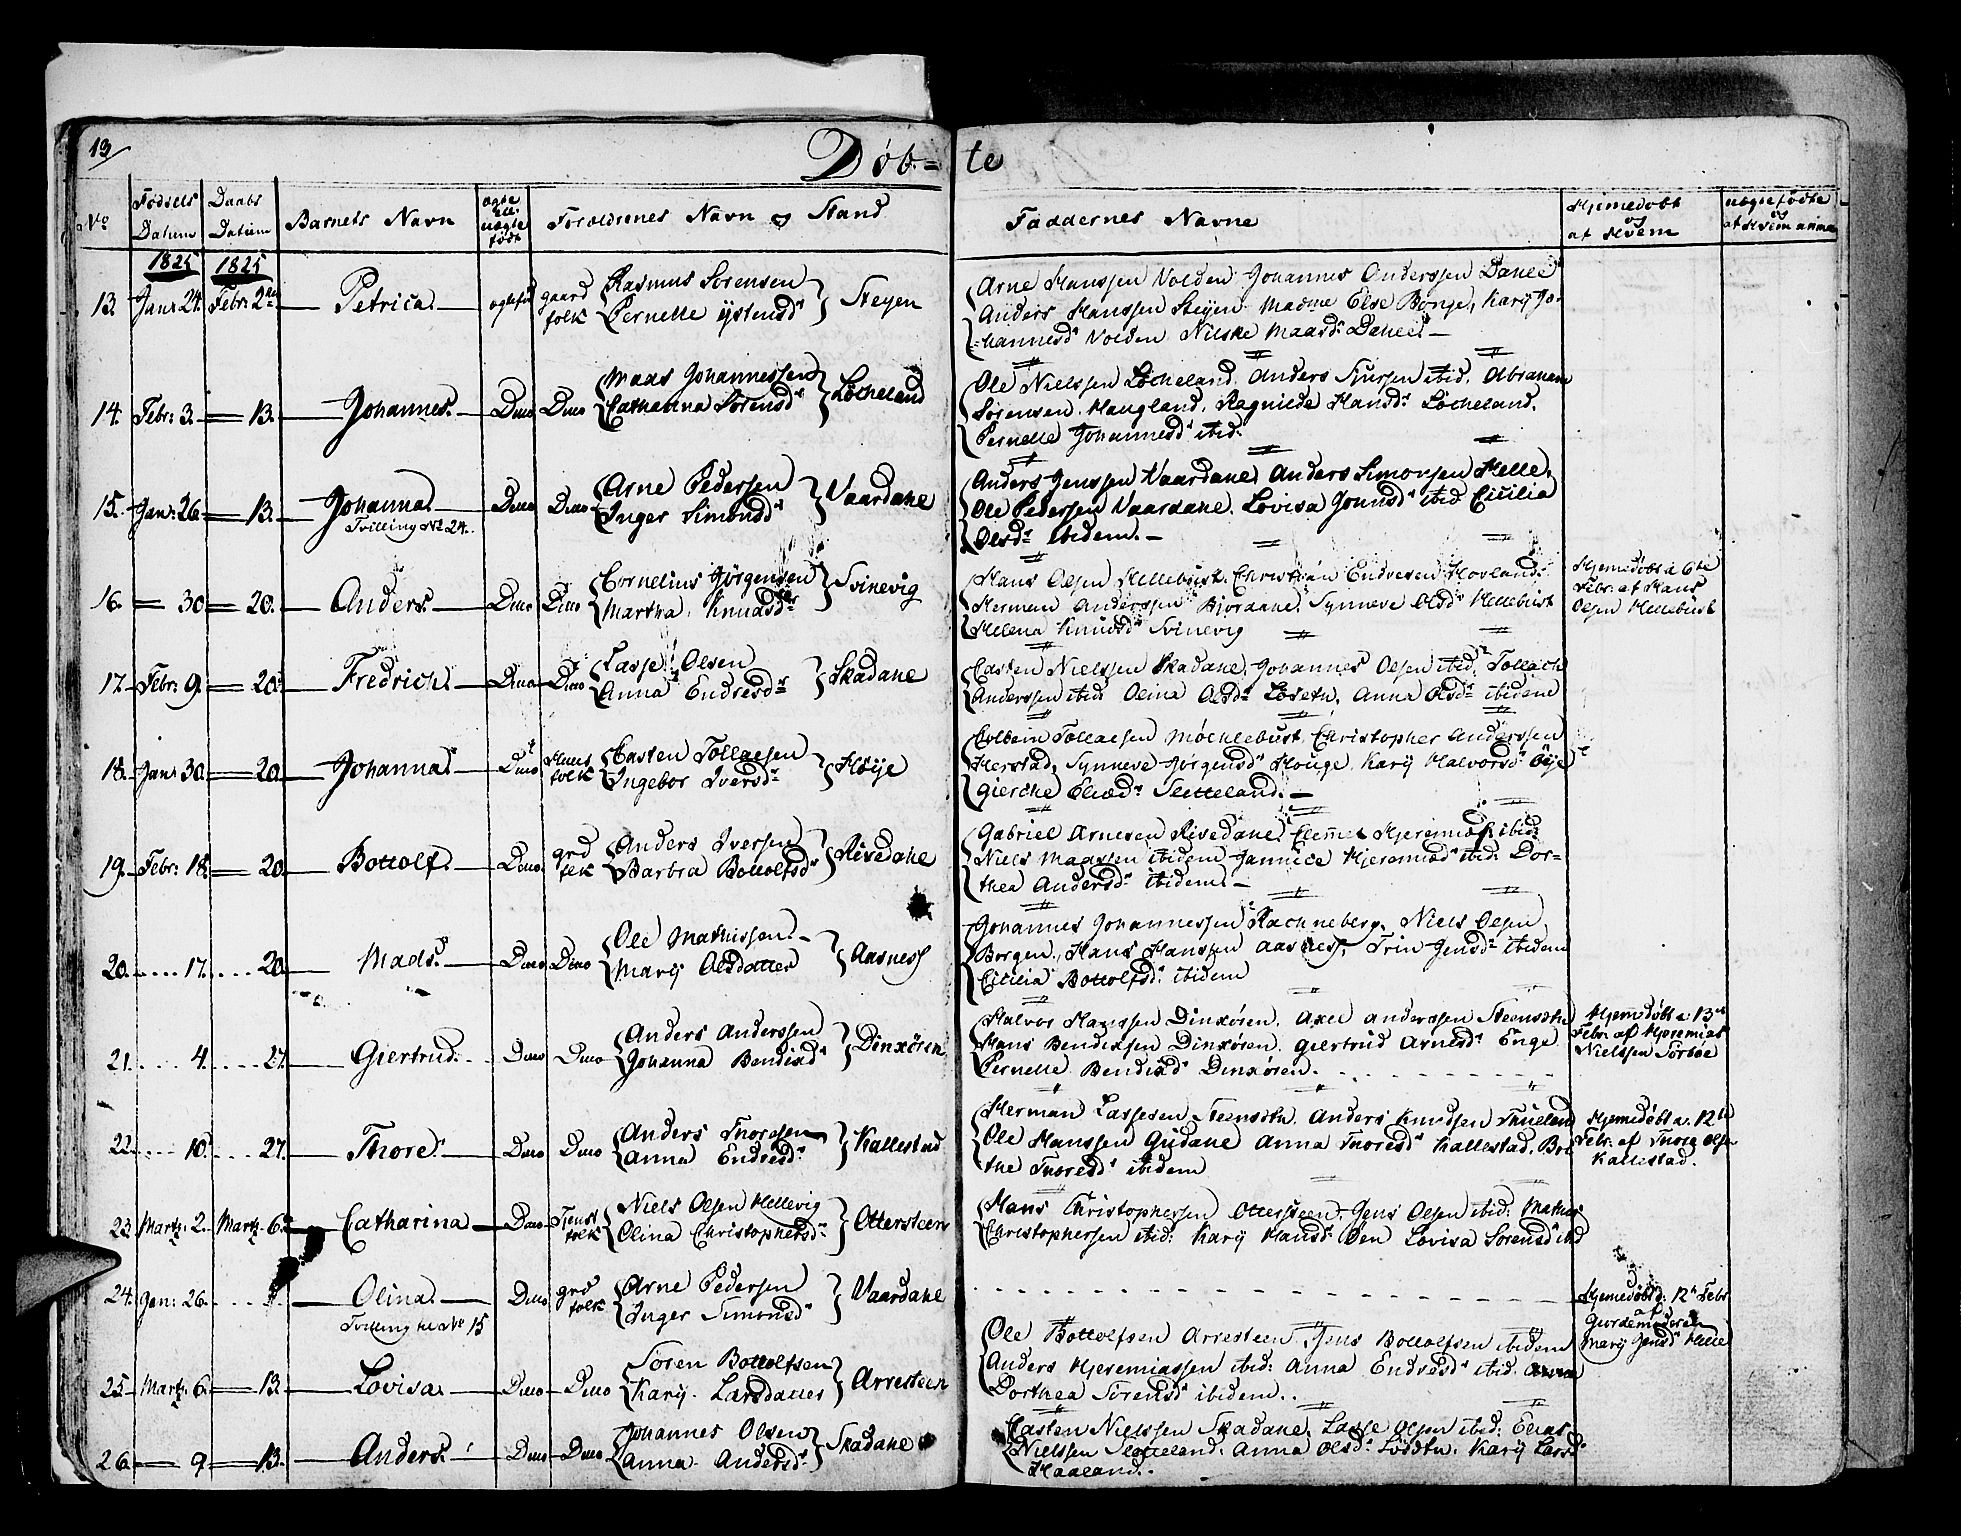 13
Døb= te
No
Fødsels Datum
Daabs Datum
Barnets Navn
ægte ell: uægte født
Forældrenes Navn og Stand
Faddernes Navne
Hjemedøbt og af Hvem
uægtefødte og af Hvem anm
1825 1825
13. Jan: 24. Febr: 2 Petrica. ægtefø gaard folk Rasmus Sørensen Pernelle Ystensd: Steyen
Arne Hanssen Volden Johannes Anderssen Danee
Anders Hanssen Steyen Madme Else Bønge, Kary Jo-
hannesd: Volden Nilske Maasd: Danee. —
14. Febr: 3. 13. Johannes. Dmo Dmo Maas Johannessen Catharina Sørensd: Løcheland
Ole Nielssen Løcheland. Anders Siursen ibid. Abraham
Sørensen Haugland. Ragnilde Hansd: Løcheland.
Pernelle Johannesd: ibid:
15. Jan: 26. 13. Johanna. Dmo Dmo Arne Pedersen Inger Simonsd: Vaardahe
Tvilling No 24.
Anders Jenssen Vaardahe, Anders Simonsen Helle,
Ole Pedersen Vaardahe. Lovisa Jonnsd: ibid Cicilia
Olsd: ibidem. —
16. 30 20. Anders. Dmo Dmo Cornelius Jørgensen Martha Knudsd: Svinevig
Hans Olsen Hellebust. Christian Endresen Hovland.
Herman Anderssen Bjordane, Synneve Olsd: Hellebust
Helena Knudsd: Svinevig
Hjemedøbt d 6te
Febr: af Hans
Olsen Hellebust
17. Febr: 9. 20. Fredrich. Dmo Dmo Lasse Olsen Anna Endresd: Skadahe
Casten Nielssen Skadahe, Johannes Olsen ibid, Tollach
Anderssen ibid: Olina Olsd: Løseth, Anna Olsd: ibidem
18. Jan: 30. 20. Johanna. Dmo Huus folk Casten Tollaesen Ingebor Iversd: Høije
Colbein Tollaesen Møchlebust, Christopher Anderssen
Herstad, Synneve Jørgensd: Houge. Kary Halvorsd: Øije
Gierche Elied: Sletteland. —
19. Febr: 18. 20. Bottolf. Dmo grd folk Anders Iversen Barbra Bottolfsd: Risedahe
Gabriel Arnesen Risedahe, Clemet Hjeremias: ibid:
Niels Maassen ibidem Jannice Hjeremiæd: ibid: Dor=
thea Andersd: ibidem. —
20. 17. 20. Mads. Dmo Dmo Ole Mathissen. Mary Olsdatter Aasness
Johannes Johannessen Rachneberg. Niels Olsen
Borgen, Hans Hanssen Aasness, Trin Jensd: ibidem
Cicilia Bottolfsd: ibidem
21. 4. 27. Giertrud. Dmo Dmo Anders Anderssen Johanna Bendixd: Dinxøren
Halvor Hanssen Dinxøren. Axel Anderssen Steensetn
Hans Bendixsen Dinxøren. Giertrud Arnesd: Enge
Pernelle Bendixd: Dinxøren.
Hjemedøbt d: 13de
Febr: af Hjeremias
Nielssen Sørbøe
22. 10. 27. Thore. Dmo Dmo Anders Thoresen Anna Endresd: Kallestad
Herman Lassesen Steensetn. Anders Knudsen Thueland
Ole Hanssen Gudahe Anna Thoresd: Kallestad. Bri
the Thoresd: ibidem
Hjemedøbt d. 12te
Febr: af Thore Olse
Kallestad.
23. Marts: 2. Marts. 6. Catharina Dmo Tienst folk Niels Olsen Hellevig Olina Christophersd: Ottersteen
Hans Christophersen Ottersteen, Jens Olsen ibid: Mathis
Christophersen ibid: Kary Hansd: Øen Lovisa Sørensd: ibid
24. Jan: 26. Olina. Dmo grd folk Arne Pedersen Inger Simonsd: Vaardahe
Tvilling til No 15
Hjemedøbt d: 12te Febr
af
Giordemoderen
Mary Jensd: Helle
25. Marts: 6. 13. Lovisa. Dmo Dmo Søren Bottolfsen Kary Larsdatter Arresteen
Ole Bottolfsen Arresteen, Jens Bottolfsen ibidem
Anders Hjeremiassen ibid: Anna Endresd: ibid. Anna
Dorthea Sørensd: ibidem.
26. 9. 13. Anders. Dmo Dmo Johannes Olsen Anna Andersd: Skadahe
Casten Nielssen Skadahe, Lasse Olsen ibid: Elias
Nielssen Sletteland. Anna Olsd: Løsetn. Kary Larsd:
Haaland.